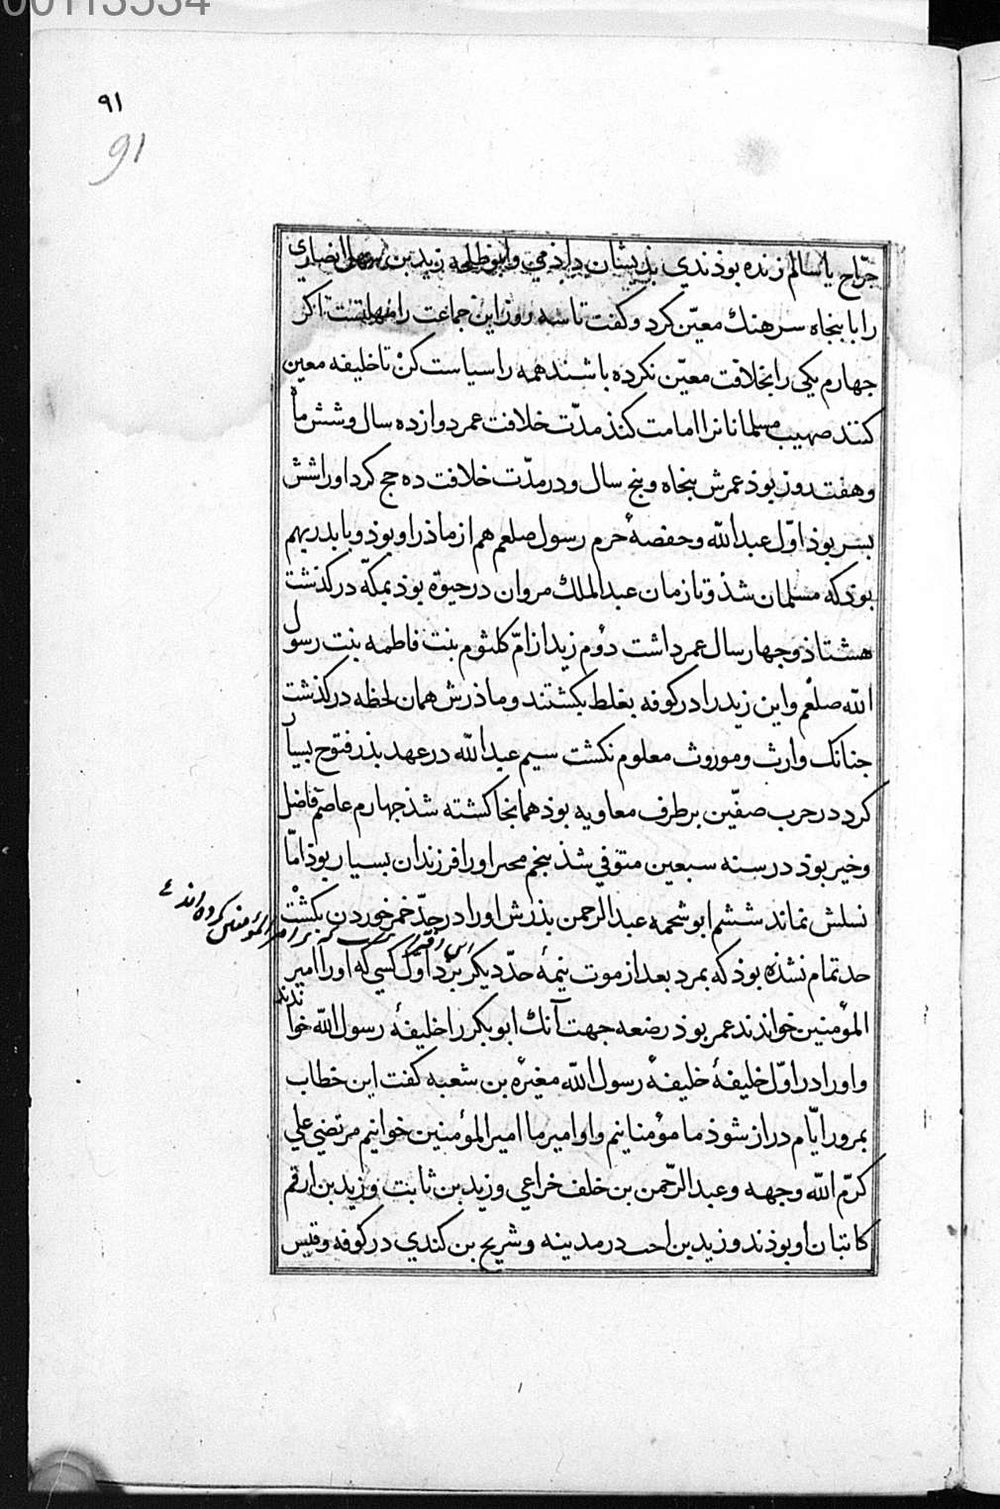 00113534
۹۱
91
جرّاح یا سالم زنده بوذندی بذیشان داذمی و ابو طلحه زید بن سهل انصاری
را با پنجاه سرهنك معیّن کرد و کفت تا سه روز این جماعت را مهلتست اکر
جهارم یکی را بخلافت معیّن نکرده باشند همه را سیاست کن تا خلیفه معین
کنند صهیب مسلمانانرا امامت کنذ مدّت خلافت عمر دوازده سال و شش ماه
و هفت روز بوذ عمرش پنجاه و پنج سال و در مدّت خلافت ده حج کرد اورا شش
بسر بوذ اوّل عبدالله و حفصهٔ حرم رسول صلعم هم از ماذر او بوذ و با بدر بهم
بوذ که مسلمان شذ و تا زمان عبدالملك مروان در حیوة بوذ بمکّه در کذشت
هشتاذ و جهار سال عمر داشت دوم زید از امّ کلثوم بنت فاطمه بنت رسول
الله صلعم و این زید را در کوفه بغلط بکشتند و ماذرش همان لحظه در کذشت
جنانك وارث و موروث معلوم نکشت سیم عبدالله در عهد بذر فتوح بسیار
کرد در حرب صفّین بر طرف معاویه بوذ همانجا کشته شذ جهارم عاصم فاضل
و خیر بوذ در سنه سبعین متوفی شذ بنجم مجبر اورا فرزندان بسیار بوذ امّا
نسلش نماند ششم ابو شحمه عبدالرحمن بذرش اورا در حدّ خمر خوردن بکشت
حد تمام نشذه بوذ که بمرد بعد از موت نیمهٔ حدّ دیکر بزد اوّل کسی که اورا امیر
المؤمنین خواندند عمر بوذ رضعه جهت آنك ابوبکر را خلیفهٔ رسول الله خواندند
و اورا در اوّل خلیفهٔ خلیفهٔ رسول الله مغیره بن شعبه کفت این خطاب
بمرور ایّام دراز شوذ ما مؤمنانیم و او امیر ما امیر المؤمنین خوانیم مرتضی علی
کرّم الله وجهه و عبدالرّحمن بن خلف خزاعی و زید بن ثابت و زید بن ارقم
کاتبان او بوذند و زید بن اخت در مدینه و شریح بن کندی در کوفه و قیس